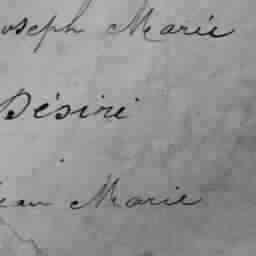 Joseph Marie
Désiré
Jean Marie